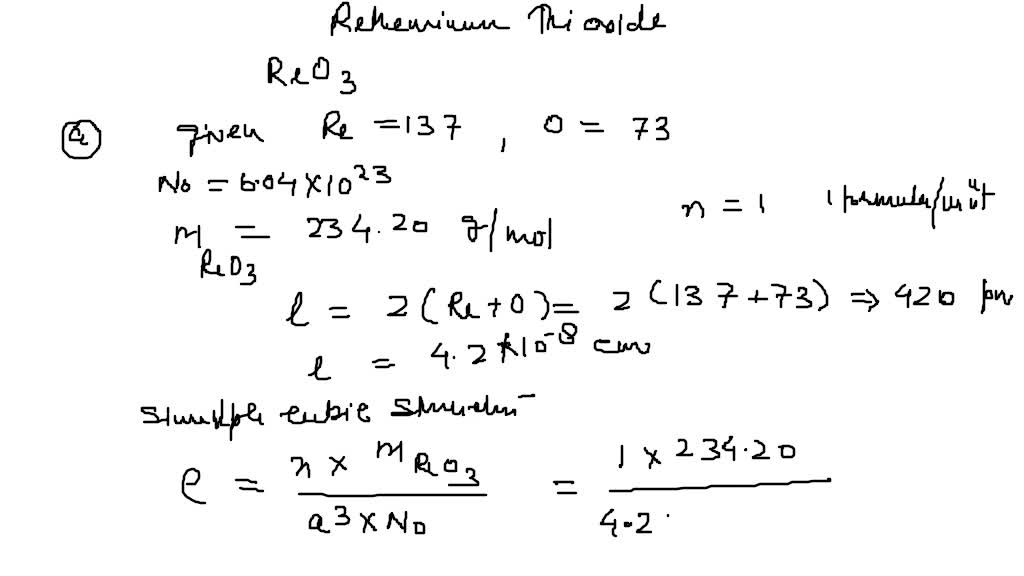 Rehenium Trioxide
ReO3
(a) given Re = 137 , O = 73
No = 6.04 × 10^23
M ReO3 = 234.20 g/mol n = 1 1 formula/unit
l = 2 (Re + O) = 2 (137 + 73) ⇒ 420 pm
l = 4.2 × 10^-8 cm
cubic
ρ = n × M ReO3 / a^3 × No = 1 × 234.20 / 4.2